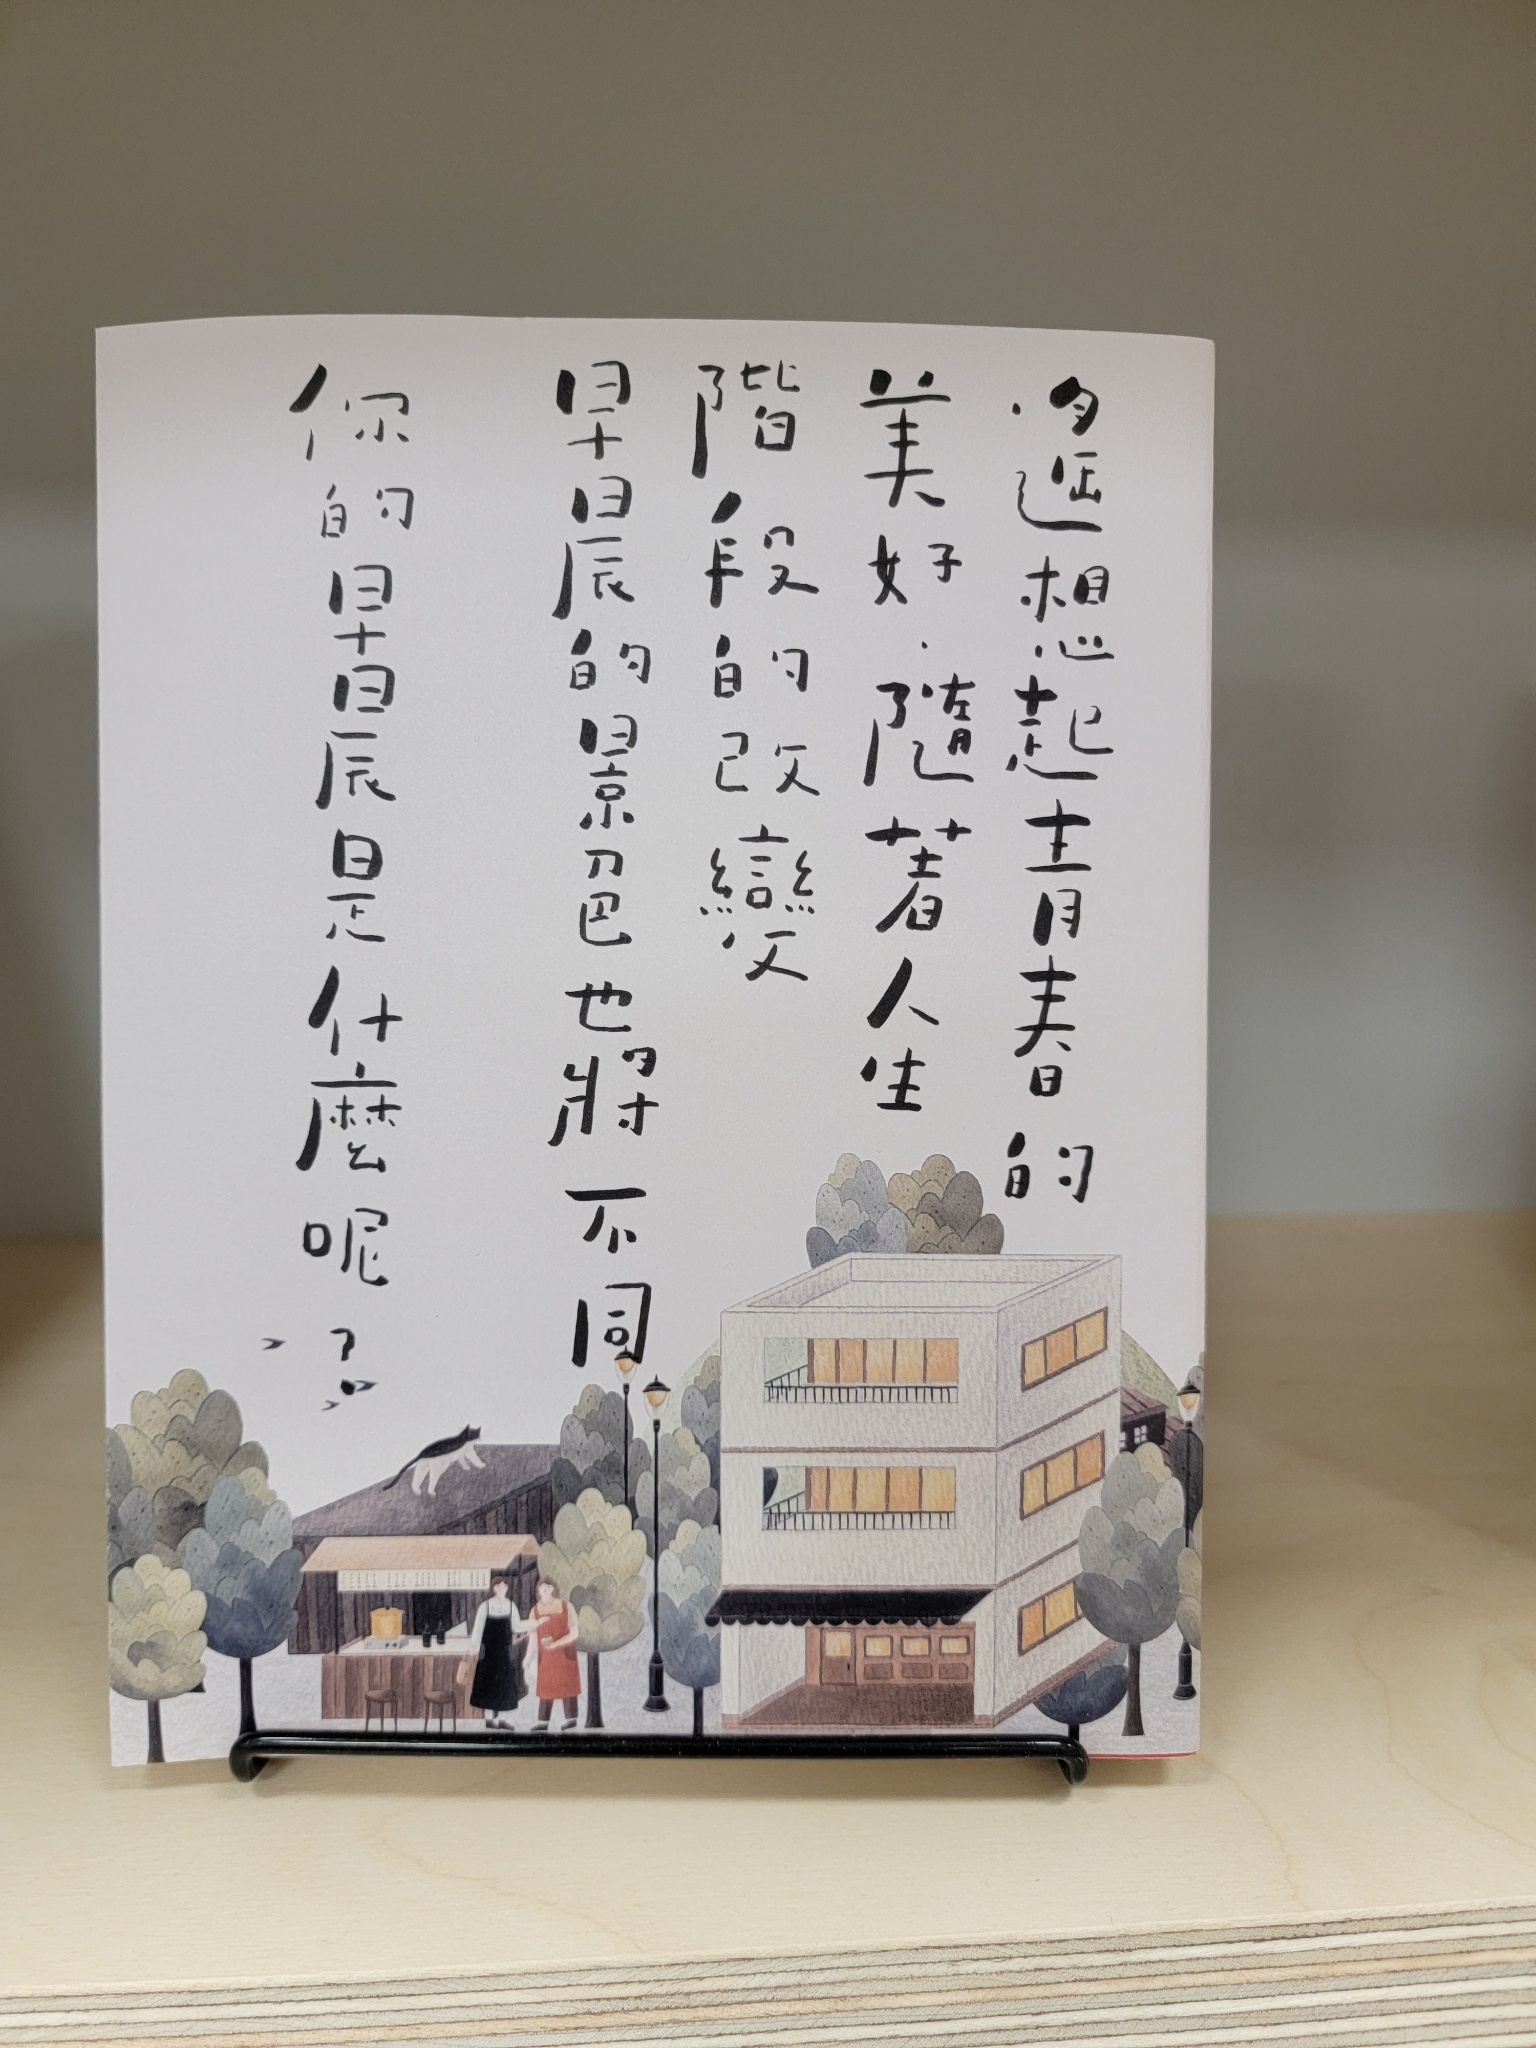 遙想起青春的
美好．隨著人生
階段的改變
早晨的景色也將不同
你的早晨是什麼呢？